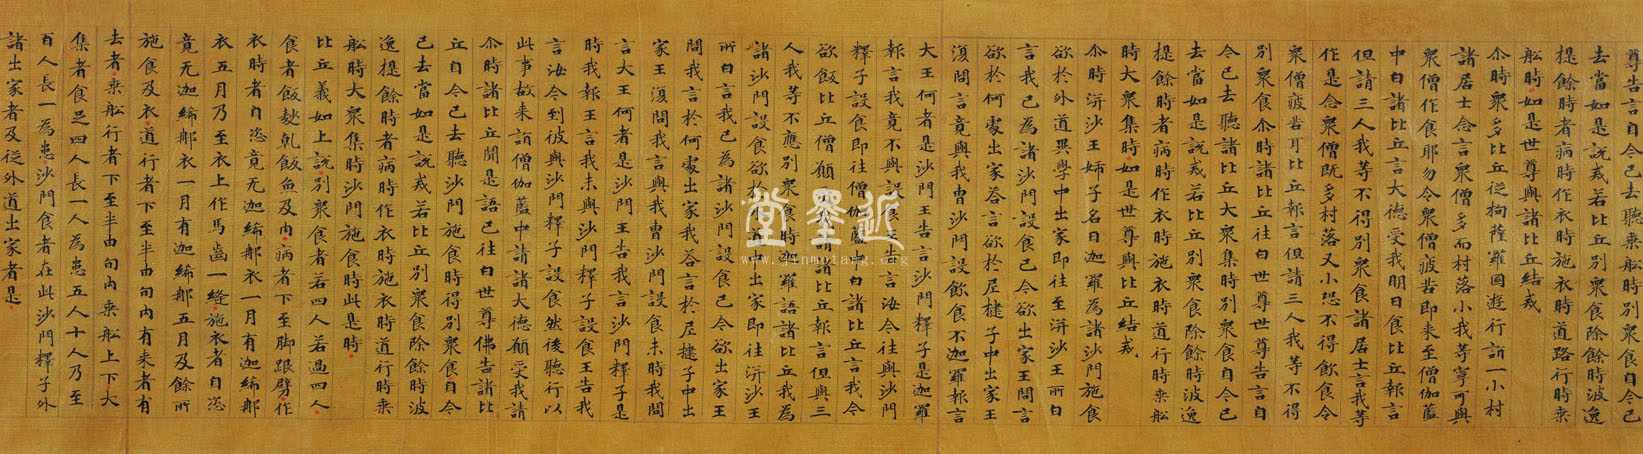 尊告言自今已去聽乘舩時別衆食自今已
去當如是說戒若比丘別衆食除餘時波逸
提餘時者病時作衣時施衣時道路行時乘
舩時如是世尊與諸比丘結戒
尒時衆多比丘従拘薩羅國遊行詣一小村
諸居士念言衆僧多而村落小我等寧可與
衆僧作食耶勿令衆僧疲苦即来至僧伽藍
中白諸比丘言大德受我明日食比丘報言
但請三人我等不得別衆食諸居士言我等
作是念衆僧既多村落又小恐不得飲食令
衆僧疲苦耳比丘報言但請三人我等不得
別衆食尒時諸比丘往白世尊世尊告言自
今已去聽諸比丘大衆集時別衆食自今已
去當如是說戒若比丘別衆食除餘時波逸
提餘時者病時作衣時施衣時道行時乘舩
時大衆集時如是世尊與比丘結戒
尒時洴沙王姊子名曰迦羅為諸沙門施食
欲於外道異學中出家即往至洴沙王所白
言我已為諸沙門設食已今欲出家王問言
欲於何處出家荅言欲於尼揵子中出家王
復問言竟與我曹沙門設飲食不迦羅報言
大王何者是沙門王告言沙門釋子是迦羅
報言我竟不與設食王告言汝今往與沙門
釋子設食即往僧伽藍中白諸比丘言我今
欲飯比丘僧願受我請諸比丘報言但與三
人我等不應別衆食時迦羅語諸比丘我為
諸沙門設食欲於外道中出家即往洴沙王
所白言我已為諸沙門設食已今欲出家王
問我言於何處出家我荅言於尼揵子中出
家王復問我言與我曹沙門設食未時我問
言大王何者是沙門王告我言沙門釋子是
時我報王言我未與沙門釋子設食王告我
言汝今到彼與沙門釋子設食然後聽行以
此事故来詣僧伽藍中請諸大德願受我請
尒時諸比丘聞是語已往白世尊佛告諸比
丘自今已去聽沙門施食時得別衆食自今
已去當如是說戒若比丘別衆食除餘時波
逸提餘時者病時作衣時施衣時道行時乘
舩時大衆集時沙門施食時此是時
比丘義如上說別衆食者若四人若過四人
食者飯麨乾飯魚及肉病者下至脚跟劈作
衣時者自恣竟无迦絺那衣一月有迦絺那
衣五月乃至衣上作馬齒一縫施衣者自恣
竟无迦絺那衣一月有迦絺那五月及餘所
施食及衣道行者下至半由旬內有来者有
去者乘舩行者下至半由旬內乘舩上下大
集者食足四人長一人為患五人十人乃至
百人長一為患沙門食者在此沙門釋子外
諸出家者及従外道出家者是
近墨堂